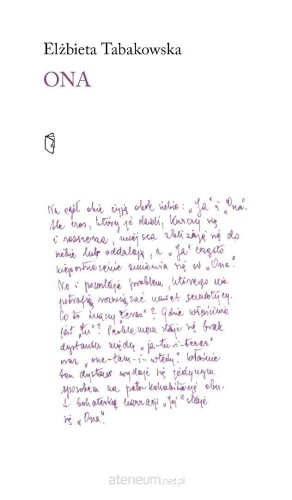 Elżbieta Tabakowska
ONA
Na ogół obie żyją obok siebie: „Ja” i „Ona”.
Ale czas, który je dzieli, kurczy się
i rozszerza, miejsca zbliżają się do
siebie lub oddalają, a „Ja” często
niepostrzeżenie zmienia się w „Ona”.
No i powstaje problem, którego nie
potrafią rozwiązać nawet semiotycy.
Co to znaczy „teraz”? Gdzie właściwie
jest „tu”? Problemem staje się brak
dystansu między „ja-tu-i-teraz”
oraz „ona-tam-i-wtedy”. Właśnie
ten dystans wydaje się jedynym
sposobem na pełną kohabitację obu.
I bohaterką narracji „Jej” staje
się „Ona”.
ateneum.net.pl